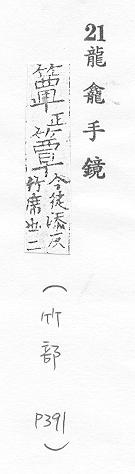 21龍龕手鏡
正簟今徒添反
竹席也二
(竹部 P391)